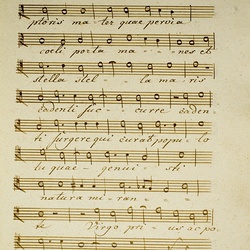 ptoris ma - ter quae pervia
coeli porta ma - - - nes et
stella stel - - la ma - ris
cadenti suc - - curre caden -
ti surgere qui curat popu - lo
tu quae - genui - sti
natura miran - - -
te Virgo pri - us ac po -